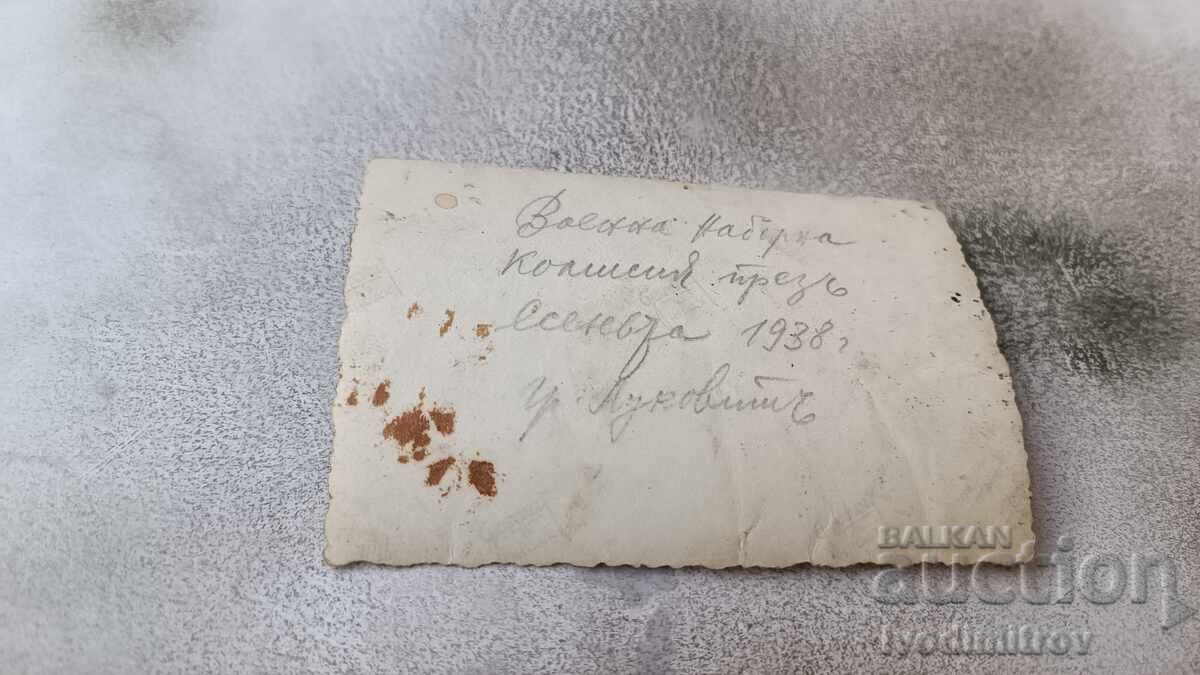 Военна Наборна
Комисия презъ
Есеньта 1938 г
гр. Луковитъ
BALKAN
auction
ivodimitrov